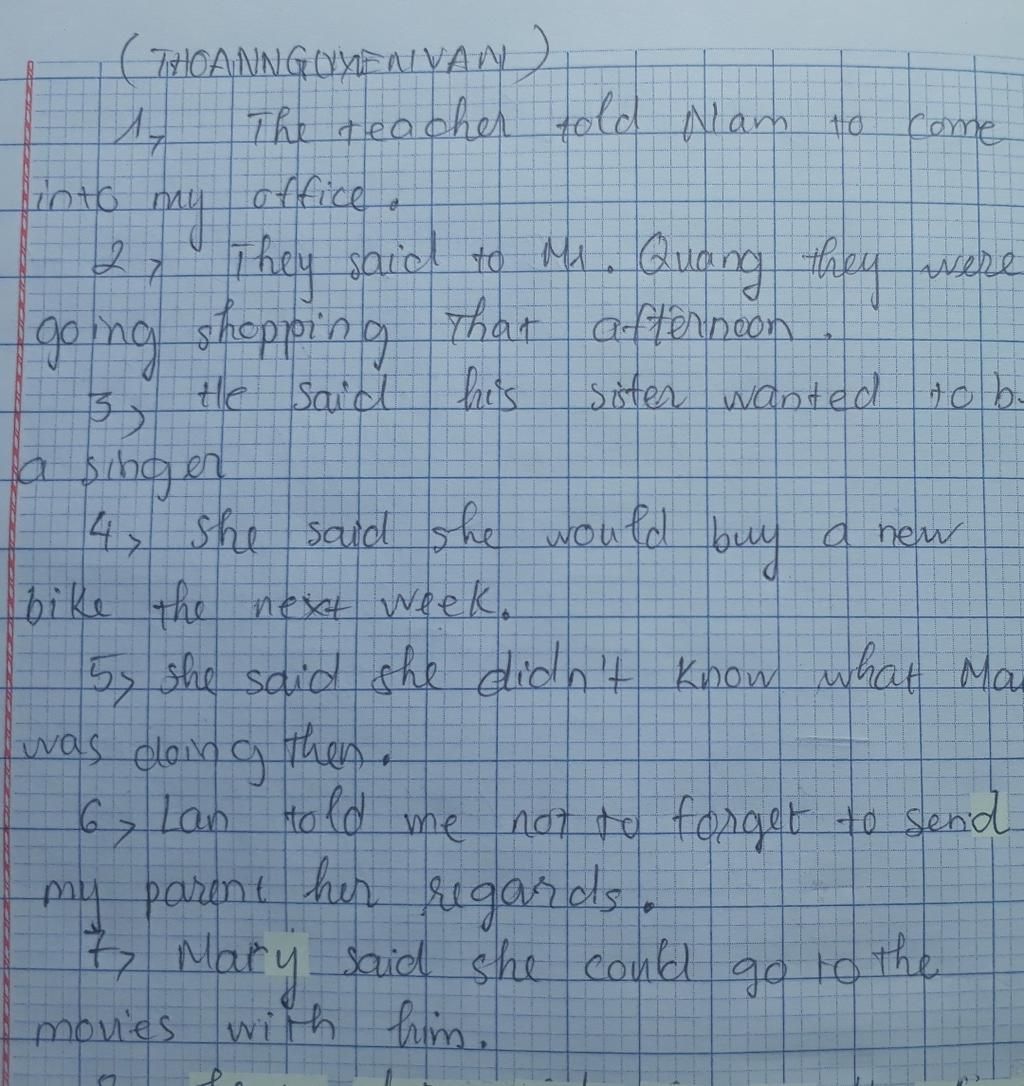 (THOANNGUYENVAN)
1, The teacher told Nam to come
into my office.
2, They said to Mr. Quang they were
going shopping that afternoon.
3, He said his sister wanted to b
a singer
4, She said she would buy a new
bike the next week.
5, She said she didn't know what Ma
was doing then.
6, Lan told me not to forget to send
my parent her regards.
7, Mary said she could go to the
movies with him.